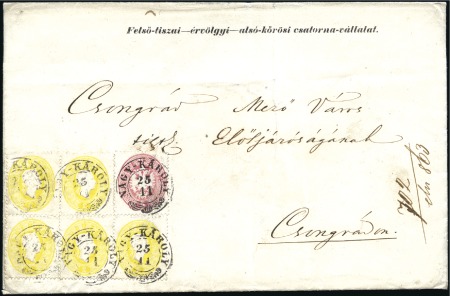 Felső-tiszai—érvölgyi—alsó-körösi csatorna-vállalat.
Csongrád Mező Város
Elöljáróságának
Csongrádon.
NAGY-KÁROLY
25
11
NAGY-KÁROLY
25
NAGY-KÁROLY
25
11
NAGY-KÁROLY
25
11
NAGY-KÁROLY
25
11